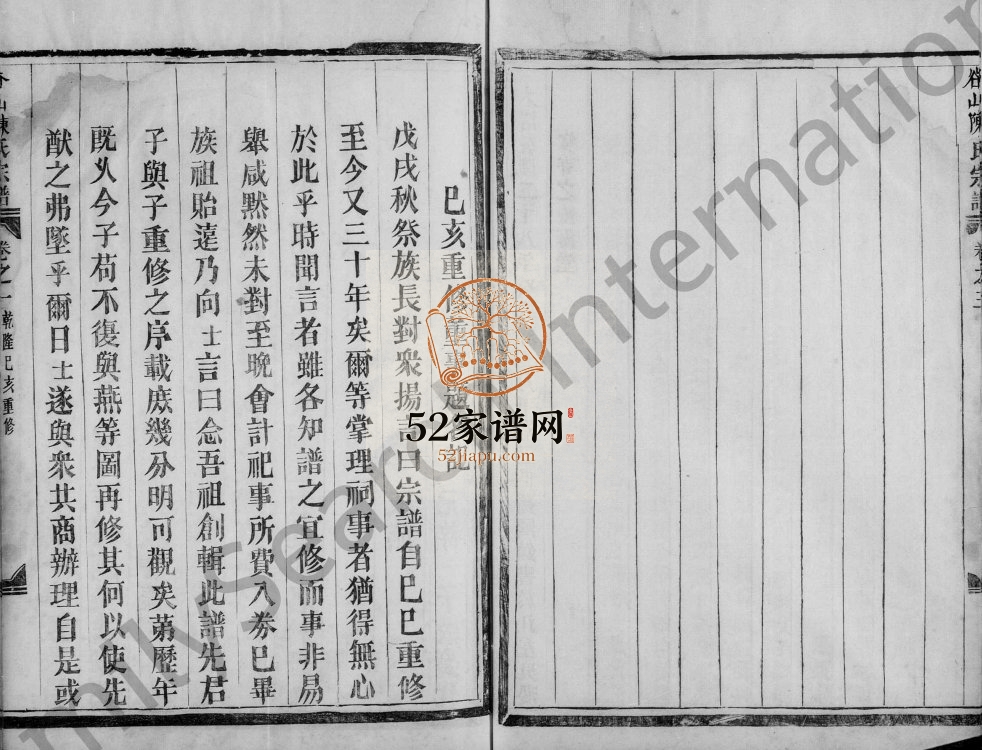 谷山陳氏宗譜 卷之二
己亥重修董事題名記
戊戌秋祭族長對衆揚言曰宗譜自己巳重修
至今又三十年矣爾等掌理祠事者猶得無心
於此乎時聞言者雖各知譜之宜修而事非易
舉咸黙然未對至晚會計祀事所費入劵已畢
族祖貽遠乃向士言曰念吾祖創輯此譜先君
子與子重修之序載庶幾分明可觀矣苐歷年
旣乆今子苟不復與燕等圖再修其何以使先
猷之弗墜乎爾日士遂與衆共商辦理自是或
陳氏宗譜 卷之一 乾隆己亥重修
52家谱网
52jiapu.com
Search International